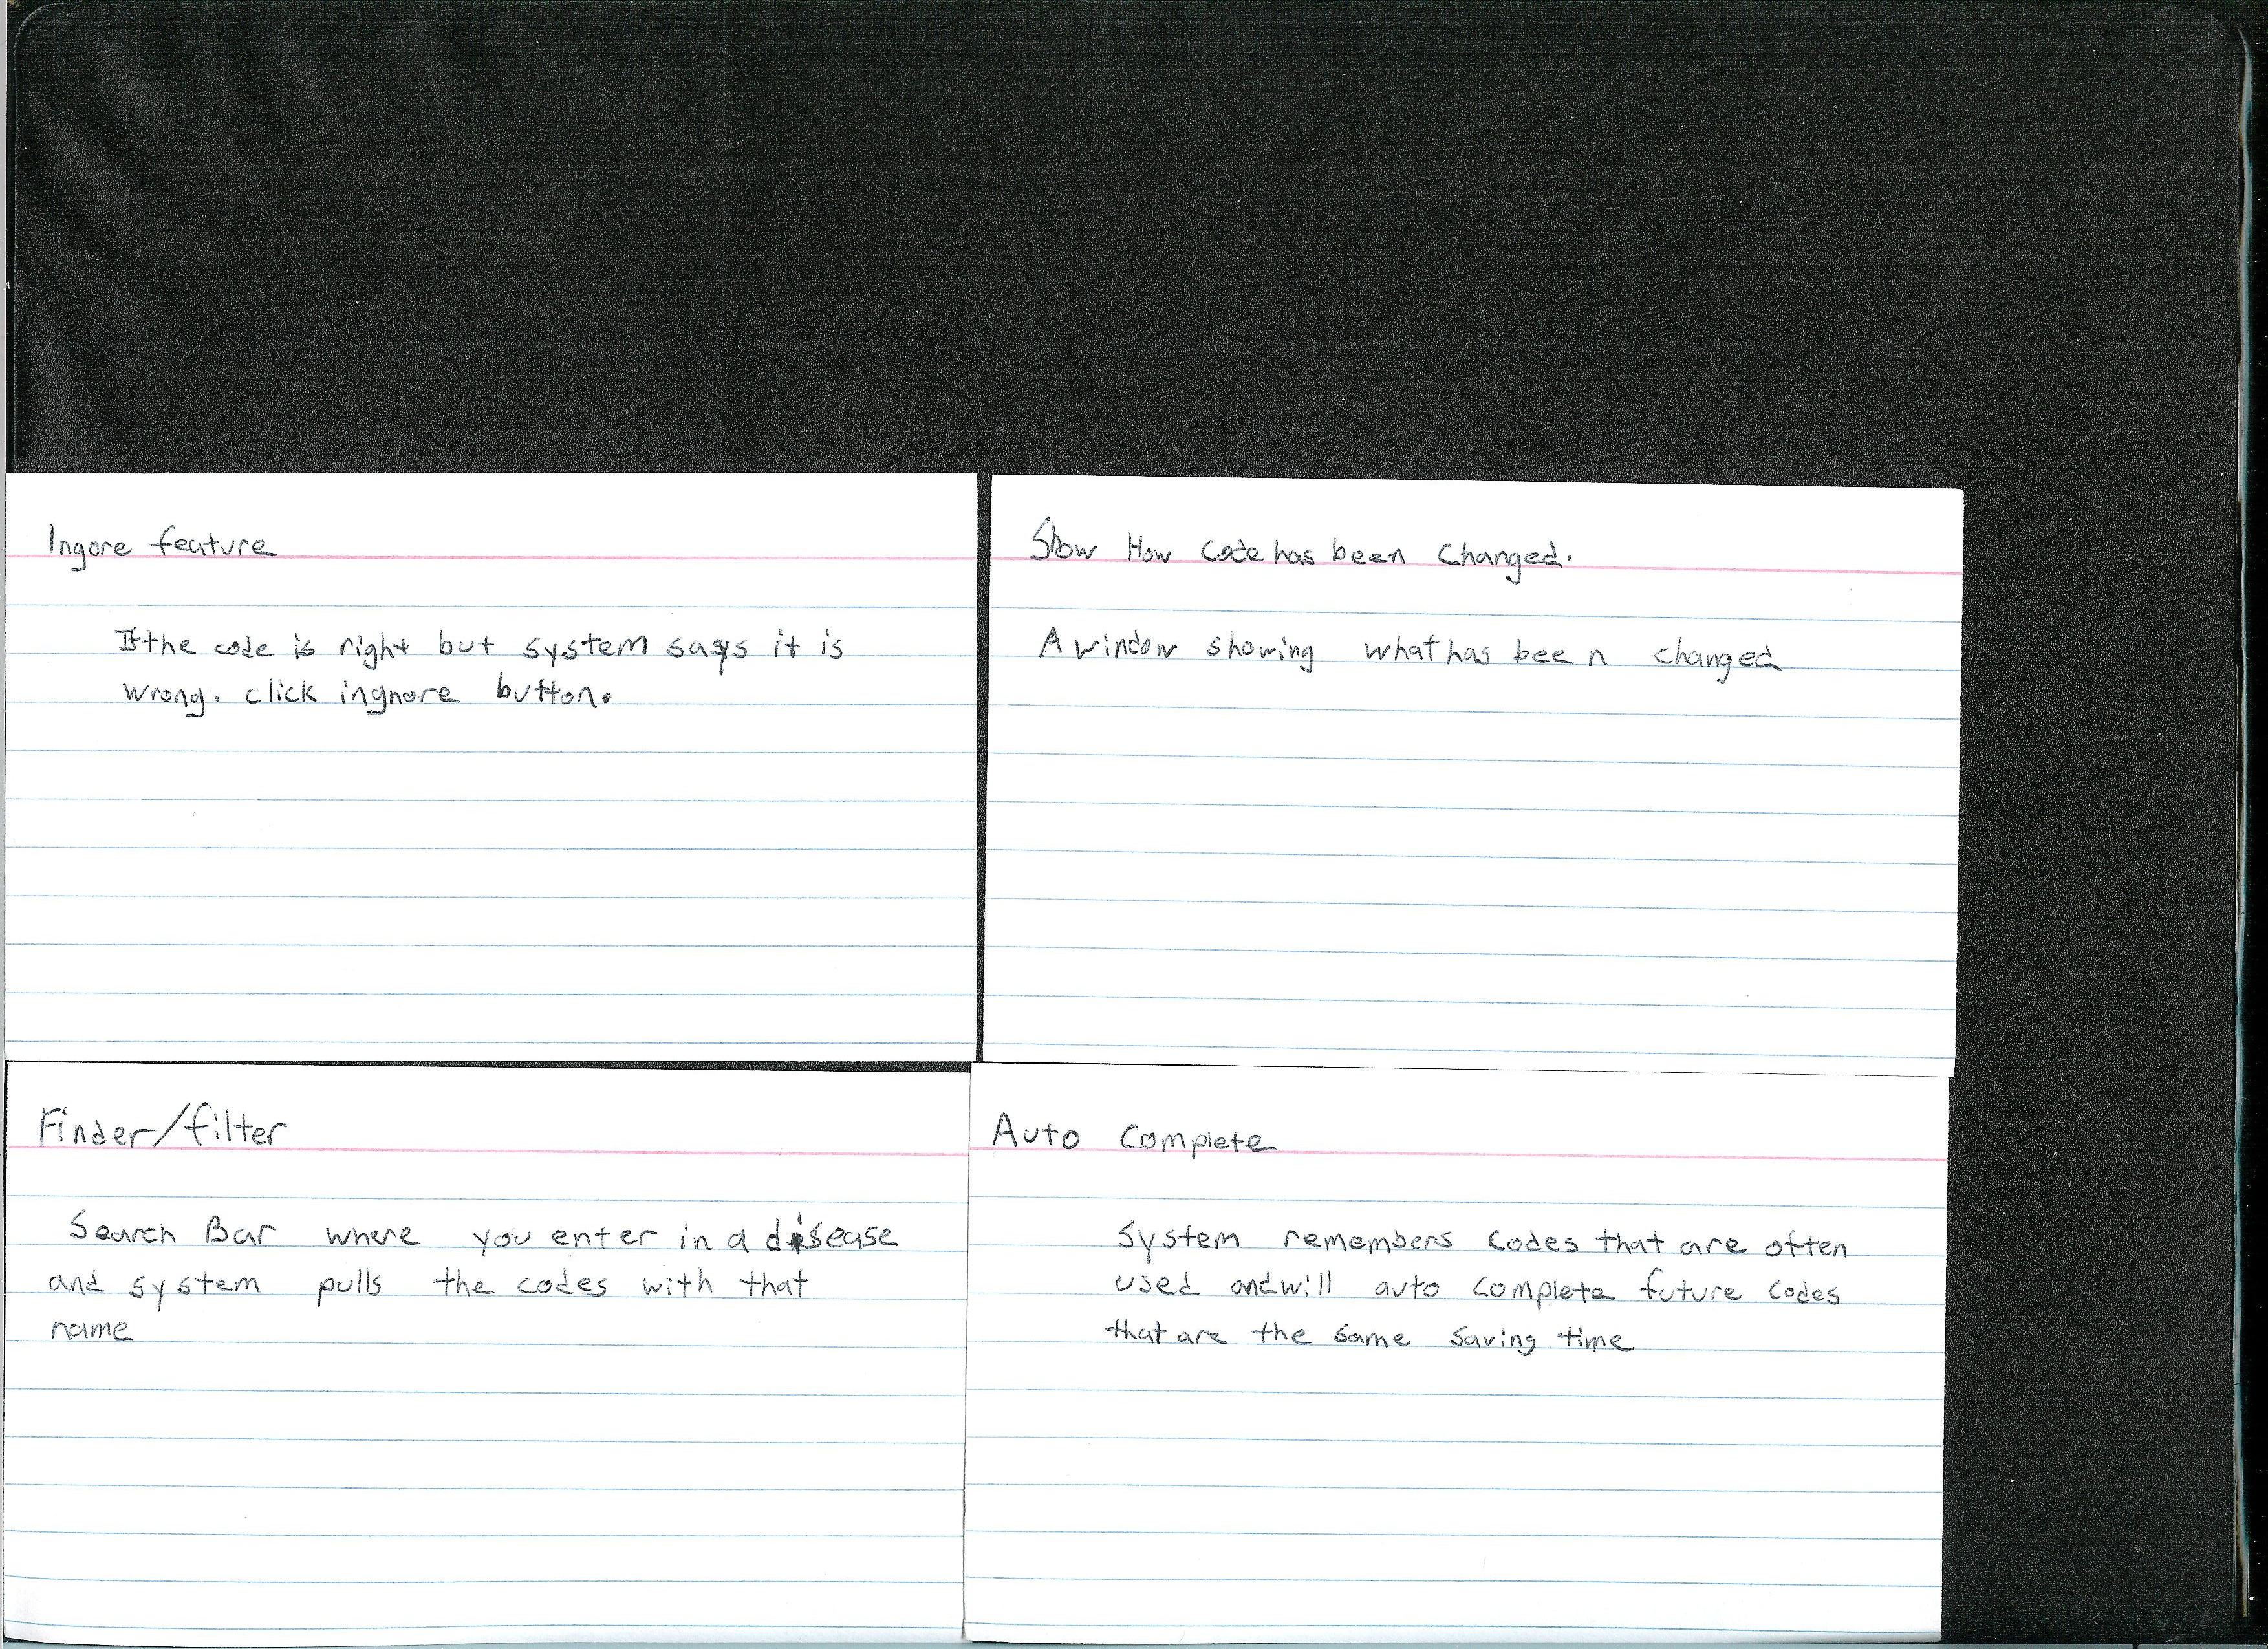 Ingore feature
If the code is right but system says it is
wrong. click ingnore button.
Show How Code has been Changed.
A window showing what has been changed
Finder/filter
Search Bar where you enter in a disease
and system pulls the codes with that
name
Auto Complete
System remembers codes that are often
used and will auto complete future codes
that are the same saving time